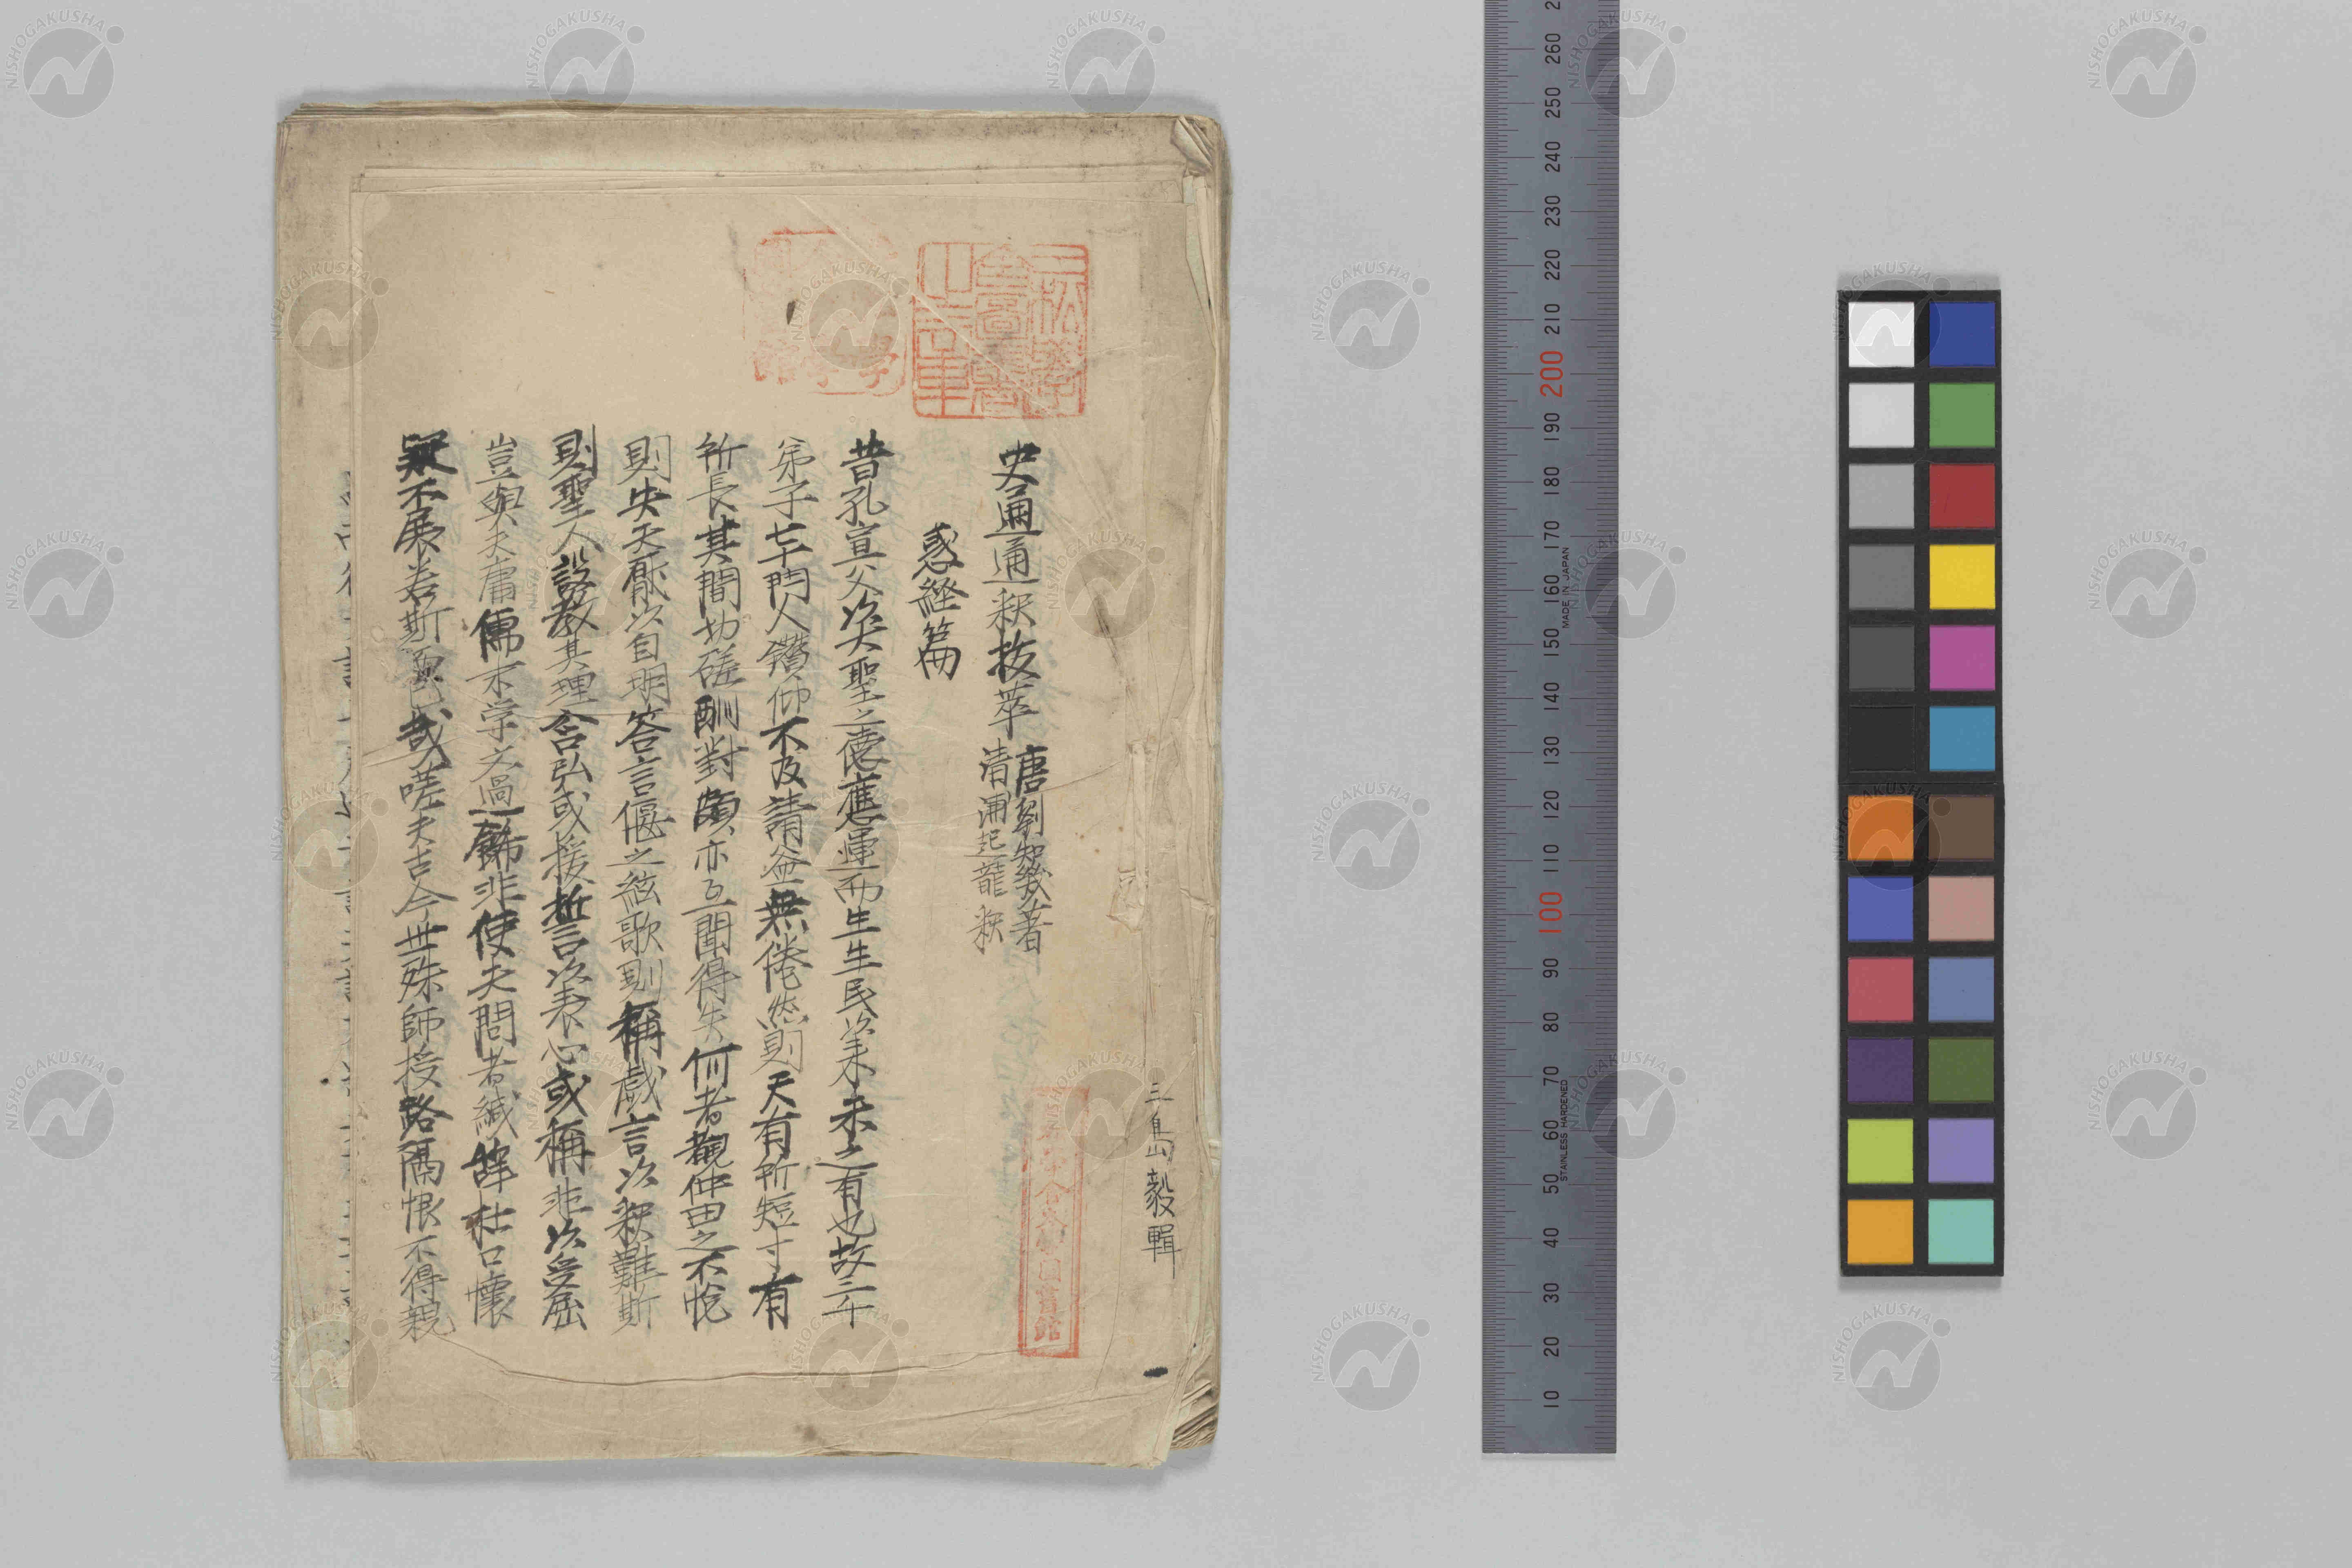 三島毅輯
史通通釈抜萃
唐劉知幾著
清浦起龍釈
惑経篇
昔孔宣父以大聖之德應運而生生民以来未之有也故三千
弟子七十門人鑽仰不及請益無倦然則尺有所短寸有
所長其間切磋酬對頗亦互聞得失何者観仲由之不悦
則矢天厭以自明答言偃之絃歌則稱戯言以釈難斯
則聖人設教其理含弘或援誓以表心或稱非以受屈
豈與夫庸儒末学文過飾非使夫問者緘辞杜口懷
疑不展若斯而已哉嗟夫古今世殊師授路隔恨不得親
260 250 240 230 220 210 200 190 180 170 160 150 140 130 120 110 100 90 80 70 60 50 40 30 20 10
MADE IN JAPAN
STAINLESS HARDENED
NISHOGAKUSHA